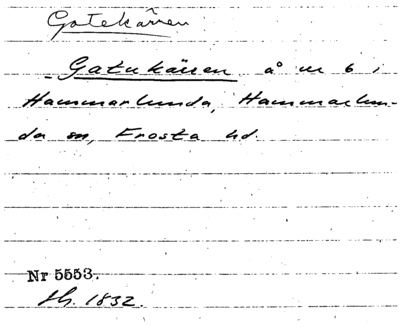 Gatekärren
Gatukärren å nr 6 i
Hammarlunda, Hammarlun-
da sn, Frosta hd.
Nr 5553.
Sh. 1832.